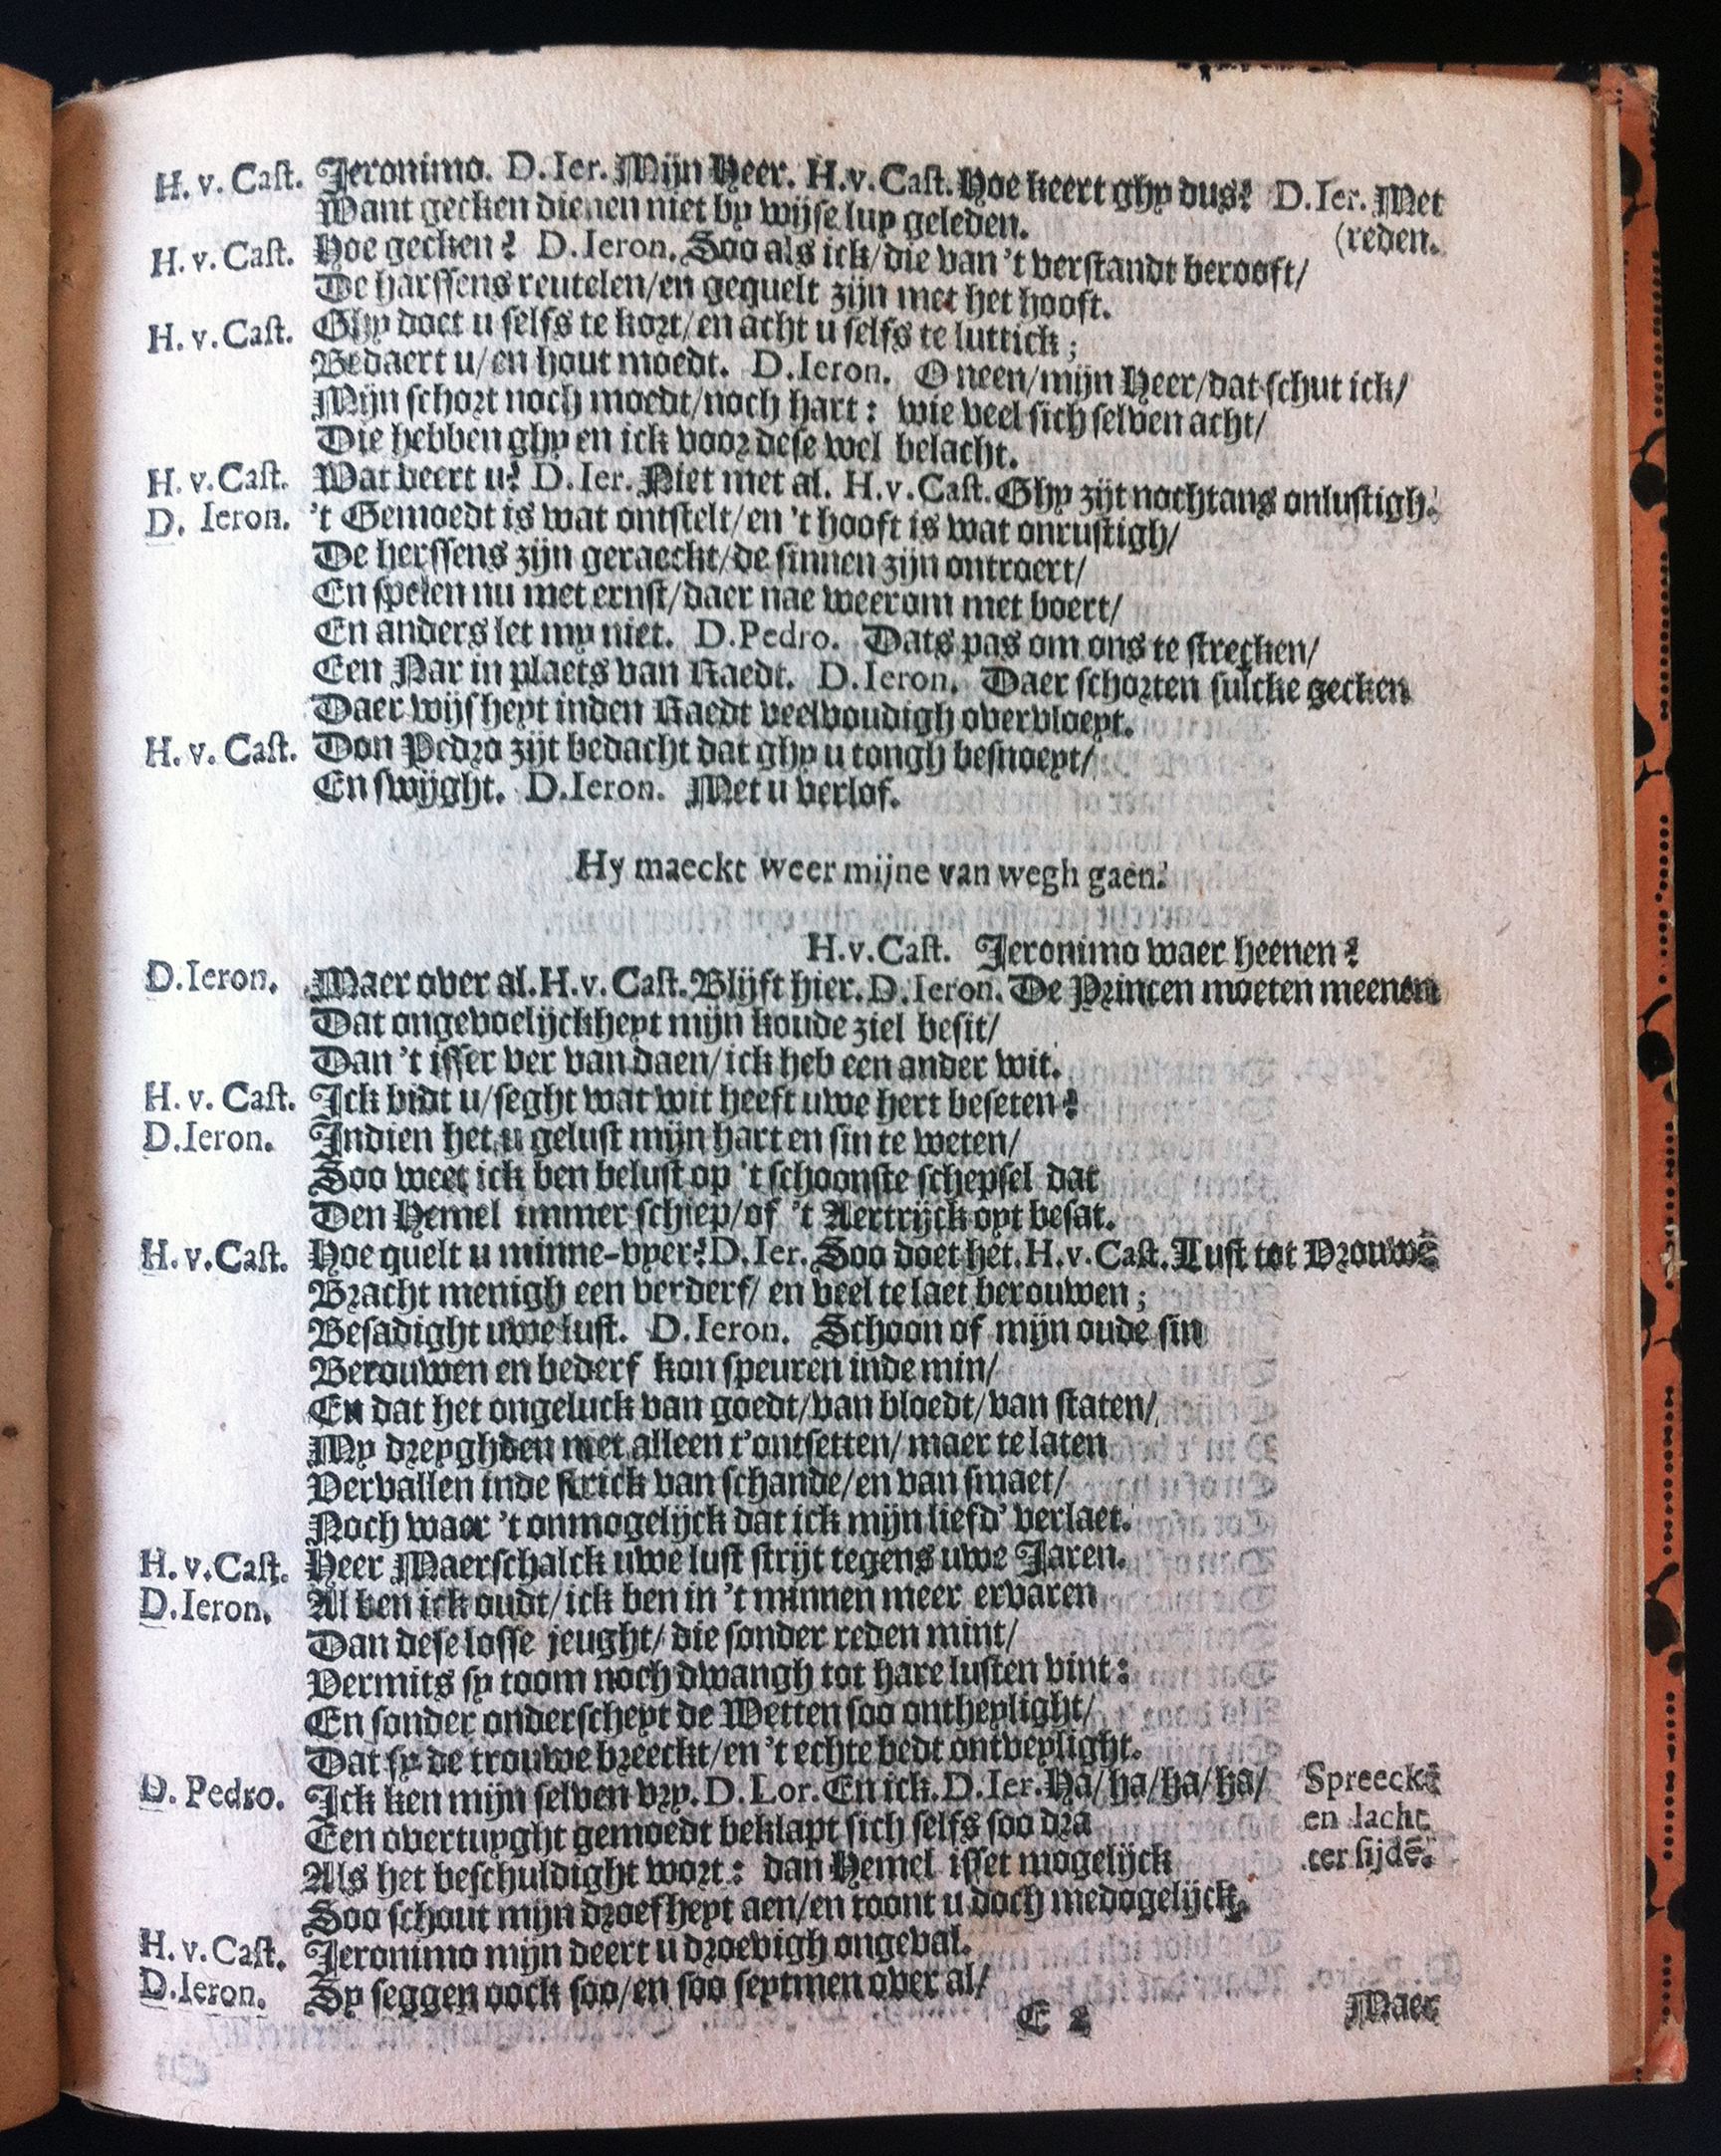 H. v. Cast. Jeronimo. D. Ier. Mijn Heer. H. v. Cast. Hoe keert ghy dus? D. Ier. Met
Want gecken dienen niet by wijse luy geleden. (reden.
H. v. Cast. Hoe gecken? D. Ieron. Soo als ick/die van 't verstandt berooft/
De harssens reutelen/en gequelt zijn met het hooft.
H. v. Cast. Ghy doet u selfs te kort/en acht u selfs te luttick;
Bedaert u/en hout moedt. D. Ieron. O neen/mijn Heer/dat schut ick/
Mijn schort noch moedt/noch hart: wie veel sich selven acht/
Die hebben ghy en ick voor dese wel belacht.
H. v. Cast. Wat deert u? D. Ier. Niet met al. H. v. Cast. Ghy zijt nochtans onlustigh.
D. Ieron. 't Gemoedt is wat ontstelt/en 't hooft is wat onrustigh/
De herssens zijn geraeckt/de sinnen zijn ontroert/
En spelen nu met ernst/daer nae weerom met boert/
En anders let my niet. D. Pedro. Dats pas om ons te strecken/
Een Nar in plaets van Raedt. D. Ieron. Daer schorten sulcke gecken
Daer wijsheyt inden Raedt veelvoudigh overvloeyt.
H. v. Cast. Don Pedro zijt bedacht dat ghy u tongh besnoeyt/
En swijght. D. Ieron. Met u verlof.
Hy maeckt weer mijne van wegh gaen.
H. v. Cast. Jeronimo waer heenen?
D. Ieron. Maer over al. H. v. Cast. Blijft hier. D. Ieron. De Princen moeten meenen
Dat ongevoelijckheyt mijn koude ziel besit/
Dan 't isser ver van daen/ick heb een ander wit.
H. v. Cast. Ick bidt u/seght wat wit heeft uwe hert beseten?
D. Ieron. Indien het u gelust mijn hart en sin te weten/
Soo weet ick ben belust op 't schoonste schepsel dat
Den Hemel immer schiep/of 't Aertrijck oyt besat.
H. v. Cast. Hoe quelt u minne-vyer? D. Ier. Soo doet het. H. v. Cast. Lust tot Vrouwē
Bracht menigh een verderf/ en veel te laet berouwen;
Besadight uwe lust. D. Ieron. Schoon of mijn oude sin
Berouwen en bederf kon speuren inde min/
En dat het ongeluck van goedt/van bloedt/van staten/
My dreyghden niet alleen t'ontsetten/ maer te laten
Vervallen inde strick van schande/en van smaet/
Noch waer 't onmogelijck dat ick mijn liefd' verlaet.
H. v. Cast. Heer Maerschalck uwe lust strijt tegens uwe Jaren.
D. Ieron. Al ben ick oudt/ick ben in 't minnen meer ervaren
Dan dese losse jeught/ die sonder reden mint/
Vermits sy toom noch dwangh tot hare lusten vint:
En sonder onderscheyt de Wetten soo ontheylight/
Dat sy de trouwe breeckt/en 't echte bedt ontveylight.
D. Pedro. Ick ken mijn selven vry. D. Lor. En ick. D. Ier. Ha/ha/ha/ha/ Spreeckt
Een overtuyght gemoedt beklapt sich selfs soo dra en lacht
Als het beschuldight wort: dan Hemel isset mogelijck ter sijdē.
Soo schout mijn droefheyt aen/en toont u doch medogelijck.
H. v. Cast. Jeronimo mijn deert u droevigh ongeval.
D. Ieron. Sy seggen oock soo/en soo seytmen over al/
E 2 Maer